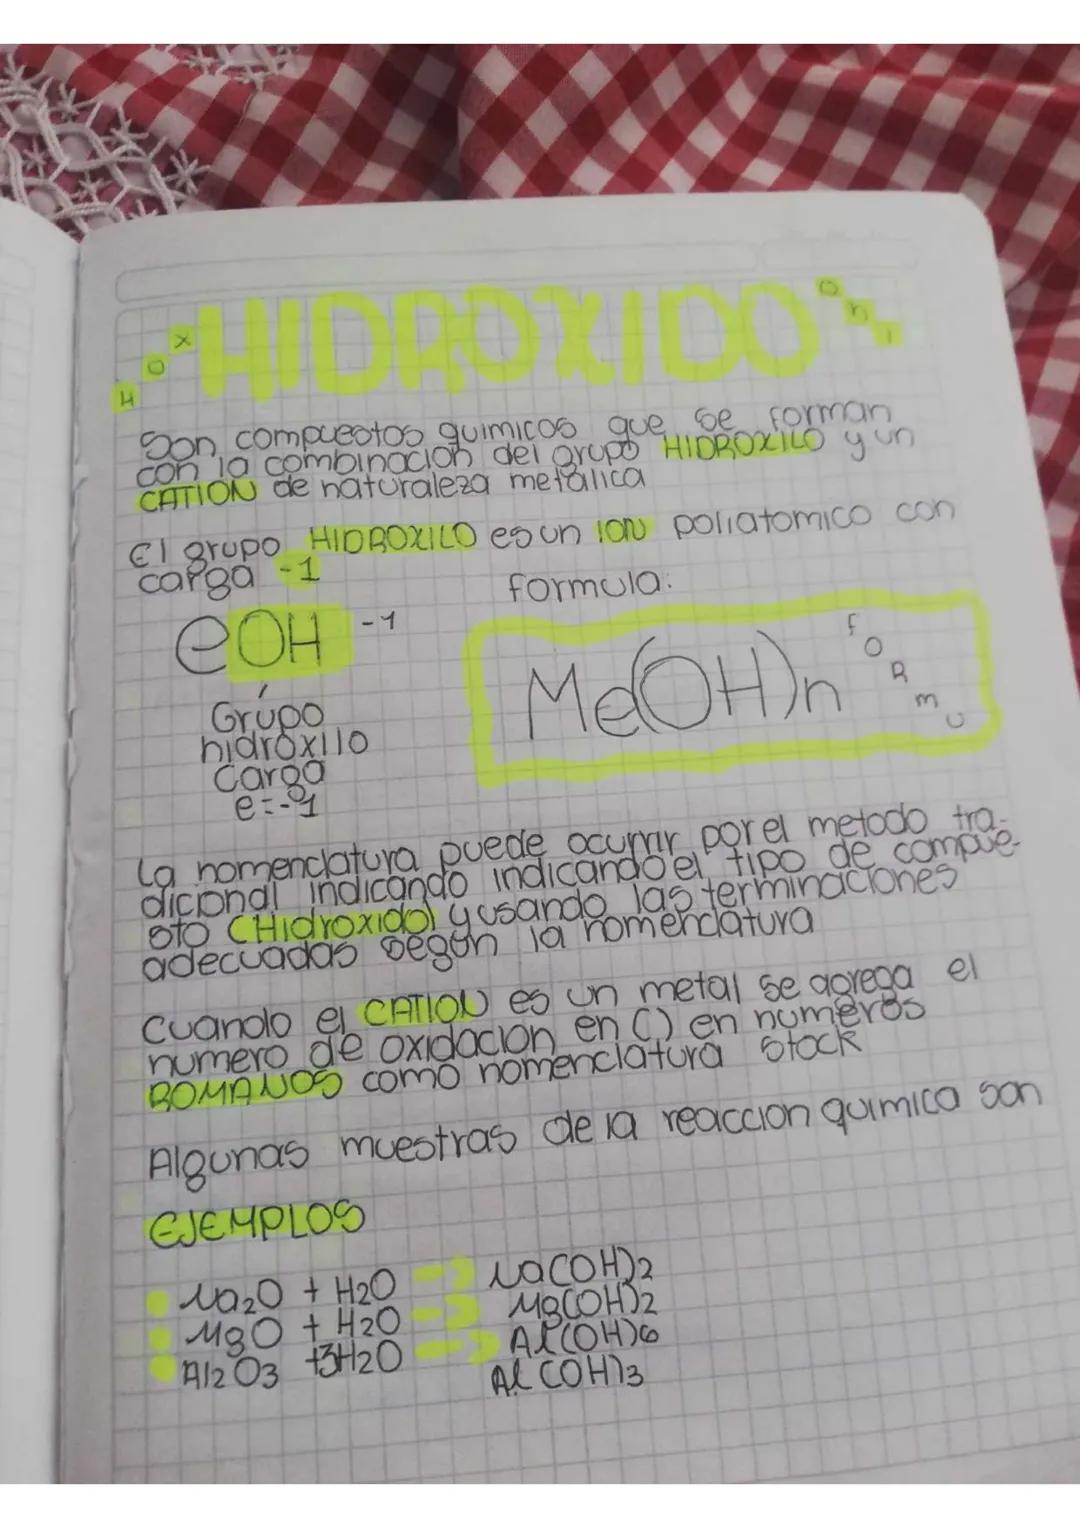 H O X HIDROXIDO O h I
Son compuestos quimicos que se forman
con la combinacion del grupo HIDROXILO y un
CATION de naturaleza metálica
El grupo HIDROXILO es un ION poliatomico con
carga -1
formula:
eOH -1
Me(OH)n FORMU
Grupo
hidroxilo
Carga
e=-1
La nomenclatura puede ocurrir por el metodo tra-
dicional indicando indicando el tipo de compue-
sto (Hidroxido) y usando las terminaciones
adecuadas según la nomenclatura
Cuando el CATION es un metal se agrega el
numero de oxidacion en () en numeros
ROMANOS como nomenclatura stock
Algunas muestras de la reaccion quimica son
EJEMPLOS
Na2O + H2O → Na(OH)2
MgO + H2O → Mg(OH)2
Al2O3 +3H2O → Al(OH)6
Al(OH)3